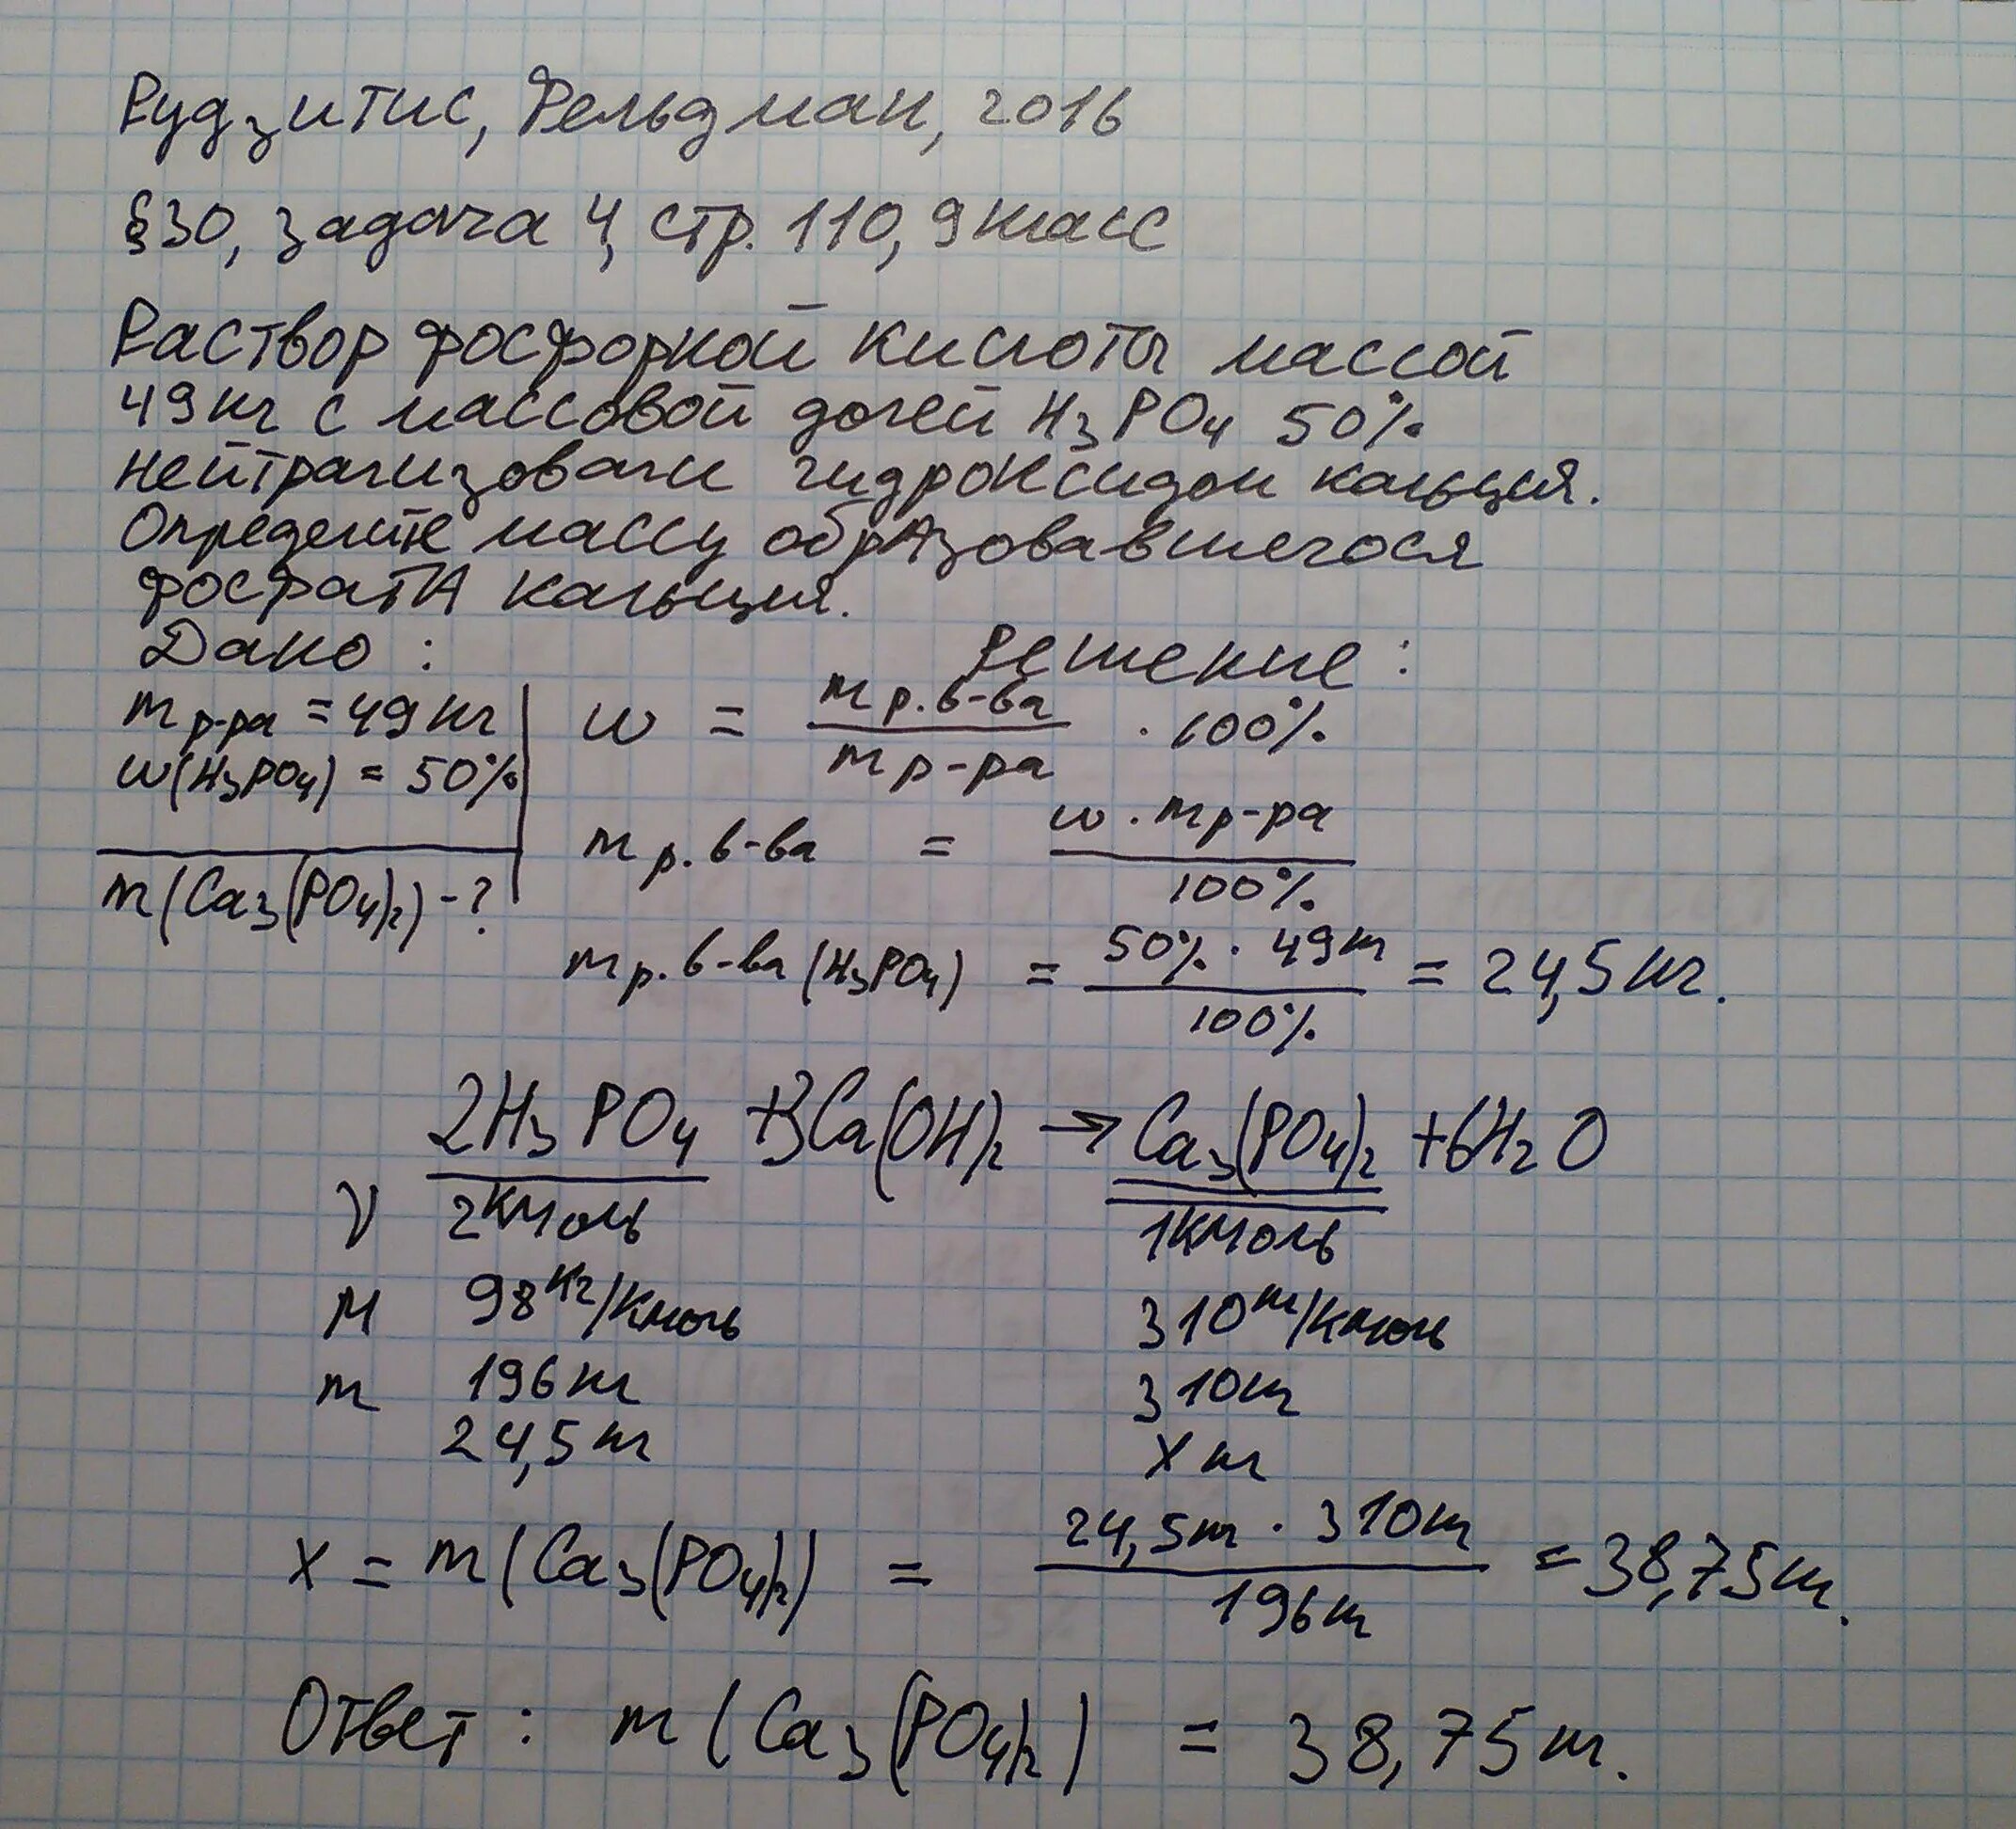 Рудзитис, Фельдман, 2016
§30, задача 4, стр. 110, 9 класс
Раствор фосфорной кислоты массой
49 кг с массовой долей H₃PO₄ 50%
нейтрализовали гидроксидом кальция.
Определите массу образовавшегося
фосфата кальция.
Дано: Решение:
m р-ра = 49 кг w = m р. в-ва / m р-ра · 100%
w(H₃PO₄) = 50%
m р. в-ва = w · m р-ра / 100%
m(Ca₃(PO₄)₂) - ?
m р. в-ва (H₃PO₄) = 50% · 49 кг / 100% = 24,5 кг.
2H₃PO₄ + 3Ca(OH)₂ → Ca₃(PO₄)₂ + 6H₂O
ν 2 кмоль 1 кмоль
M 98 кг/кмоль 310 кг/кмоль
m 196 кг 310 кг
24,5 кг x кг
x = m(Ca₃(PO₄)₂) = 24,5 кг · 310 кг / 196 кг = 38,75 кг.
Ответ: m(Ca₃(PO₄)₂) = 38,75 кг.